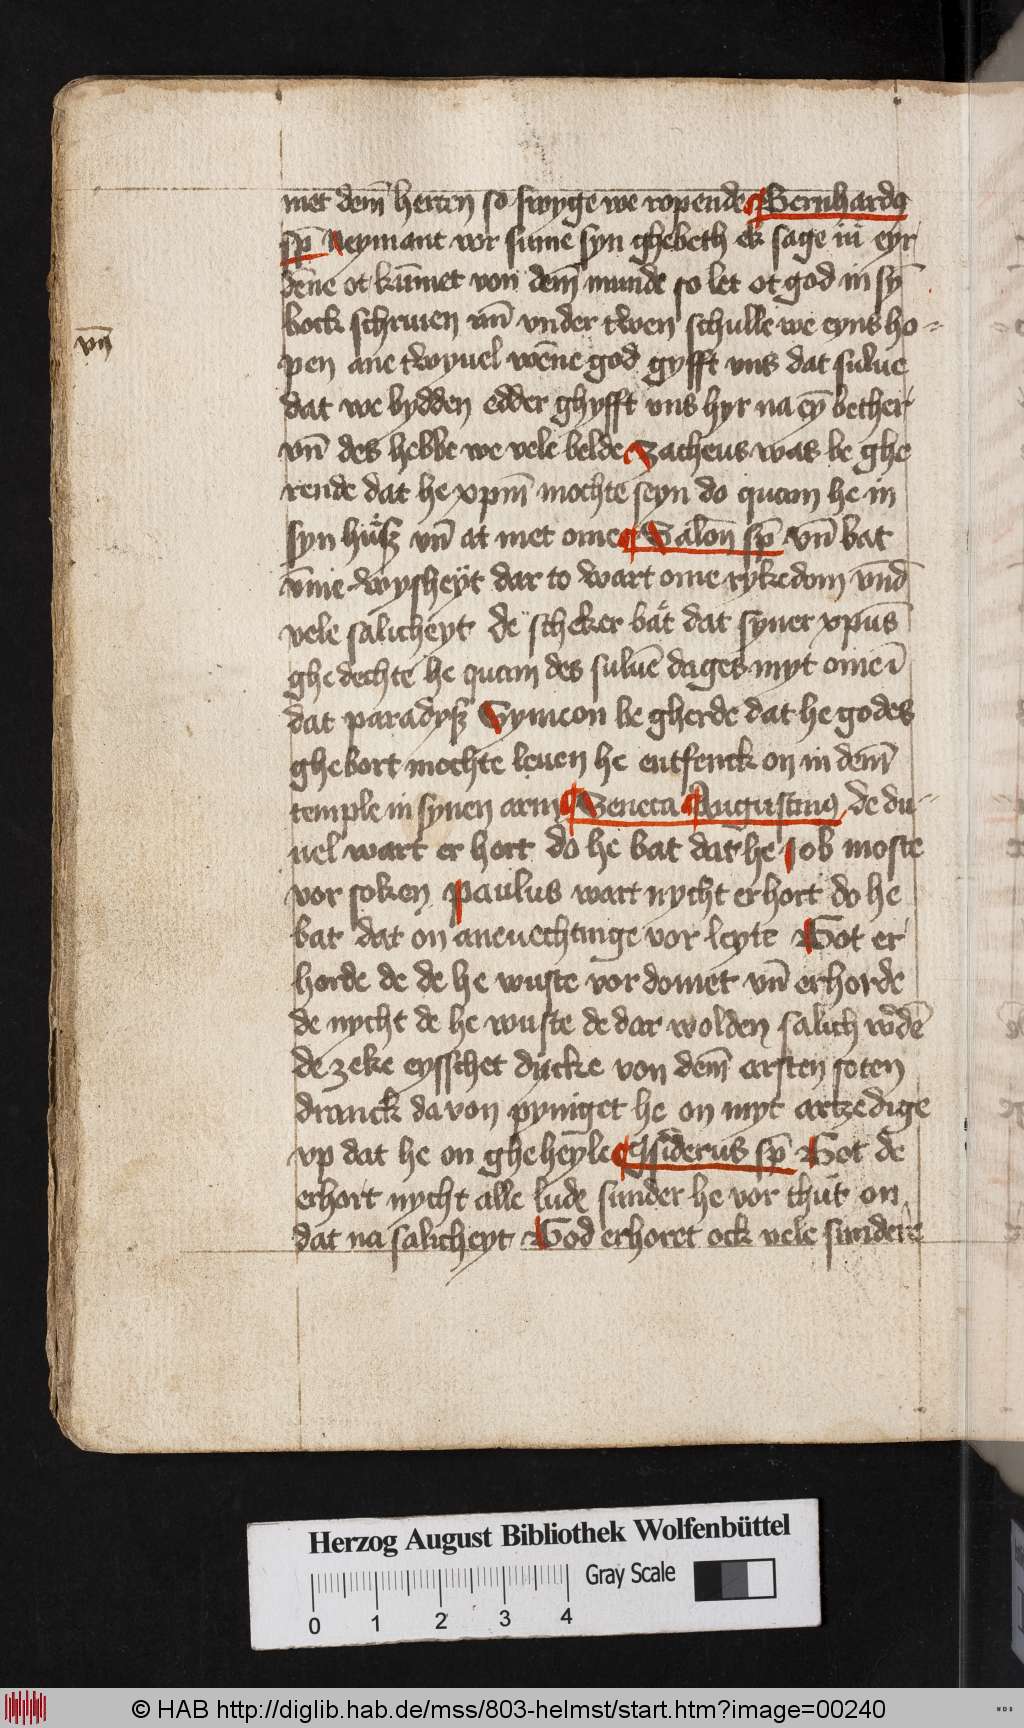 met dem̄ herten so swyge we ropende ¶ Bernhardꝯ
sp̄ Neymant vor sume syn ghebeth ek sage iu eyr
dēne ot kūmet von dem̄ munde so let ot god in sȳ
bock schriuen vn̄ vnder twen schulle we eyns ho-
vn̄
pen ane twyuel wēne god gyfft vns dat sulue
dat we bydden edder ghyfft vns hyr na eȳ bether
vn̄ des hebbe we vele belde Zacheus was be ghe
rende dat he xpm̄ mochte seyn do quam he in
syn huͤsz vn̄ at met ome ¶ Salon̄ sp̄ vn̄ bat
v̄me wysheyt dar to wart ome rykedom vnd̄
vele salicheyt de scheker bat dat syner xpūs
ghe dechte he quam des suluē dages myt ome ī
dat paradysz Symeon be gherde dat he godes
ghebort mochte leuen he entfenck on in dem̄
temple in synen arm ¶ Seneca ¶ Augustinꝯ de du-
uel wart er hort do he bat dat he Job moste
vor soken Paulus wart nycht erhort do he
bat dat on aneuechtinge vor leyte Got er
horde de de he wuste vor domet vn̄ erhorde
de nycht de he wuste de dar wolden salich w̄dē
de zeke eysschet ducke von dem̄ arsten soten
dranck da von pyniget he on myt artzedige
vp dat he on ghe heyle ¶ Ysiderus sp̄ Got de
erhort nycht alle lude sunder he vor thut on
dat na salicheyt God erhoret ock vele sundere
Herzog August Bibliothek Wolfenbüttel
Gray Scale
0 1 2 3 4
© HAB http://diglib.hab.de/mss/803-helmst/start.htm?image=00240